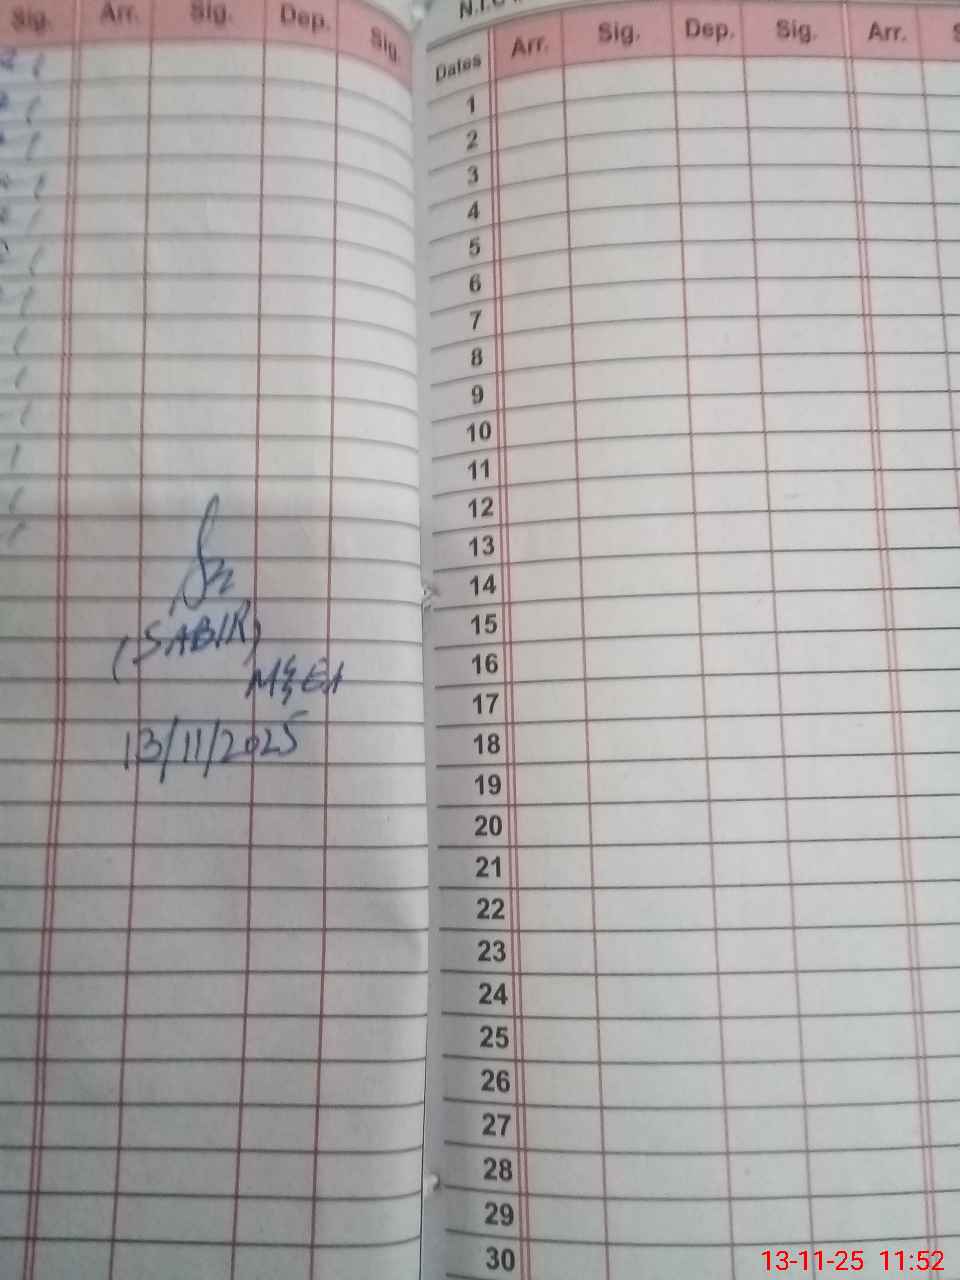 Sig. Arr. Sig. Dep. Sig.
(SABIR)
M&EA
13/11/2025
N.I.C
Dates Arr. Sig. Dep. Sig. Arr.
1
2
3
4
5
6
7
8
9
10
11
12
13
14
15
16
17
18
19
20
21
22
23
24
25
26
27
28
29
30
13-11-25 11:52